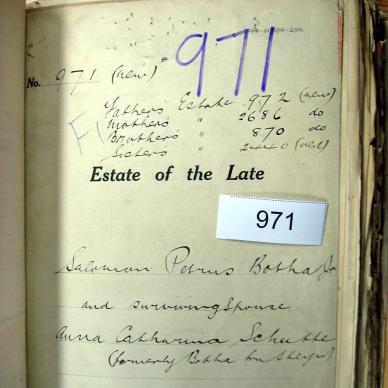 971
No. 971 (new)
Fathers Estate 972 (new)
Mothers " 2686 do
Brothers " 870 do
Sisters " 2440 (old)
Estate of the Late
971
Salomon Petrus Botha Jr
and surviving Spouse
Anna Catharina Schutte
(formerly Botha